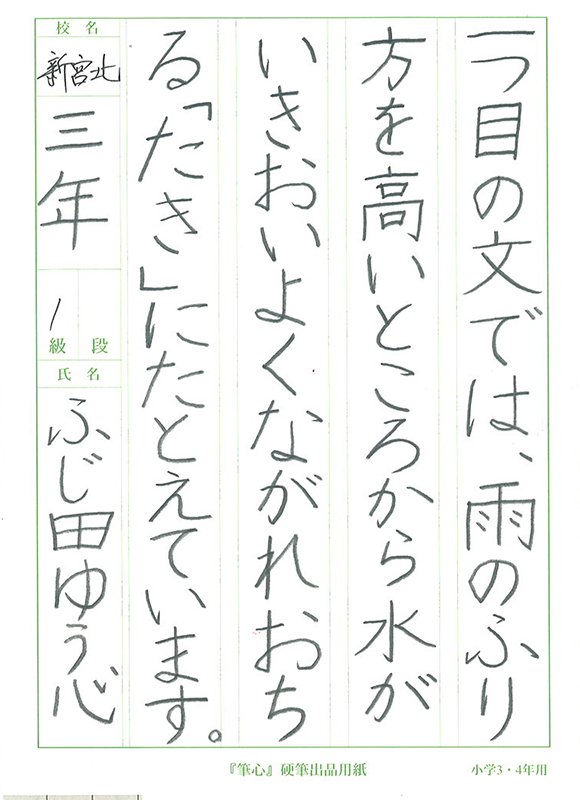 一つ目の文では、雨のふり
方を高いところから水が
いきおいよくながれおち
る「たき」にたとえています。
校名
新宮北
三年
1
級段
氏名
ふじ田ゆう心
『筆心』硬筆出品用紙
小学3・4年用